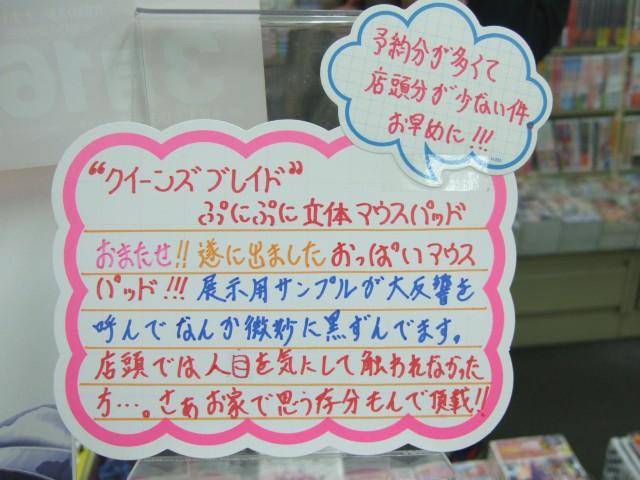 予約分が多くて
店頭分が少ない件。
お早めに!!!
"クイーンズブレイド"
ぷにぷに立体マウスパッド
おまたせ!! 遂に出ました おっぱいマウス
パッド!!! 展示用サンプルが大反響を
呼んでなんか微妙に黒ずんでます。
店頭では人目を気にして触われなかった
方…。さぁお家で思う存分もんで頂戴!!